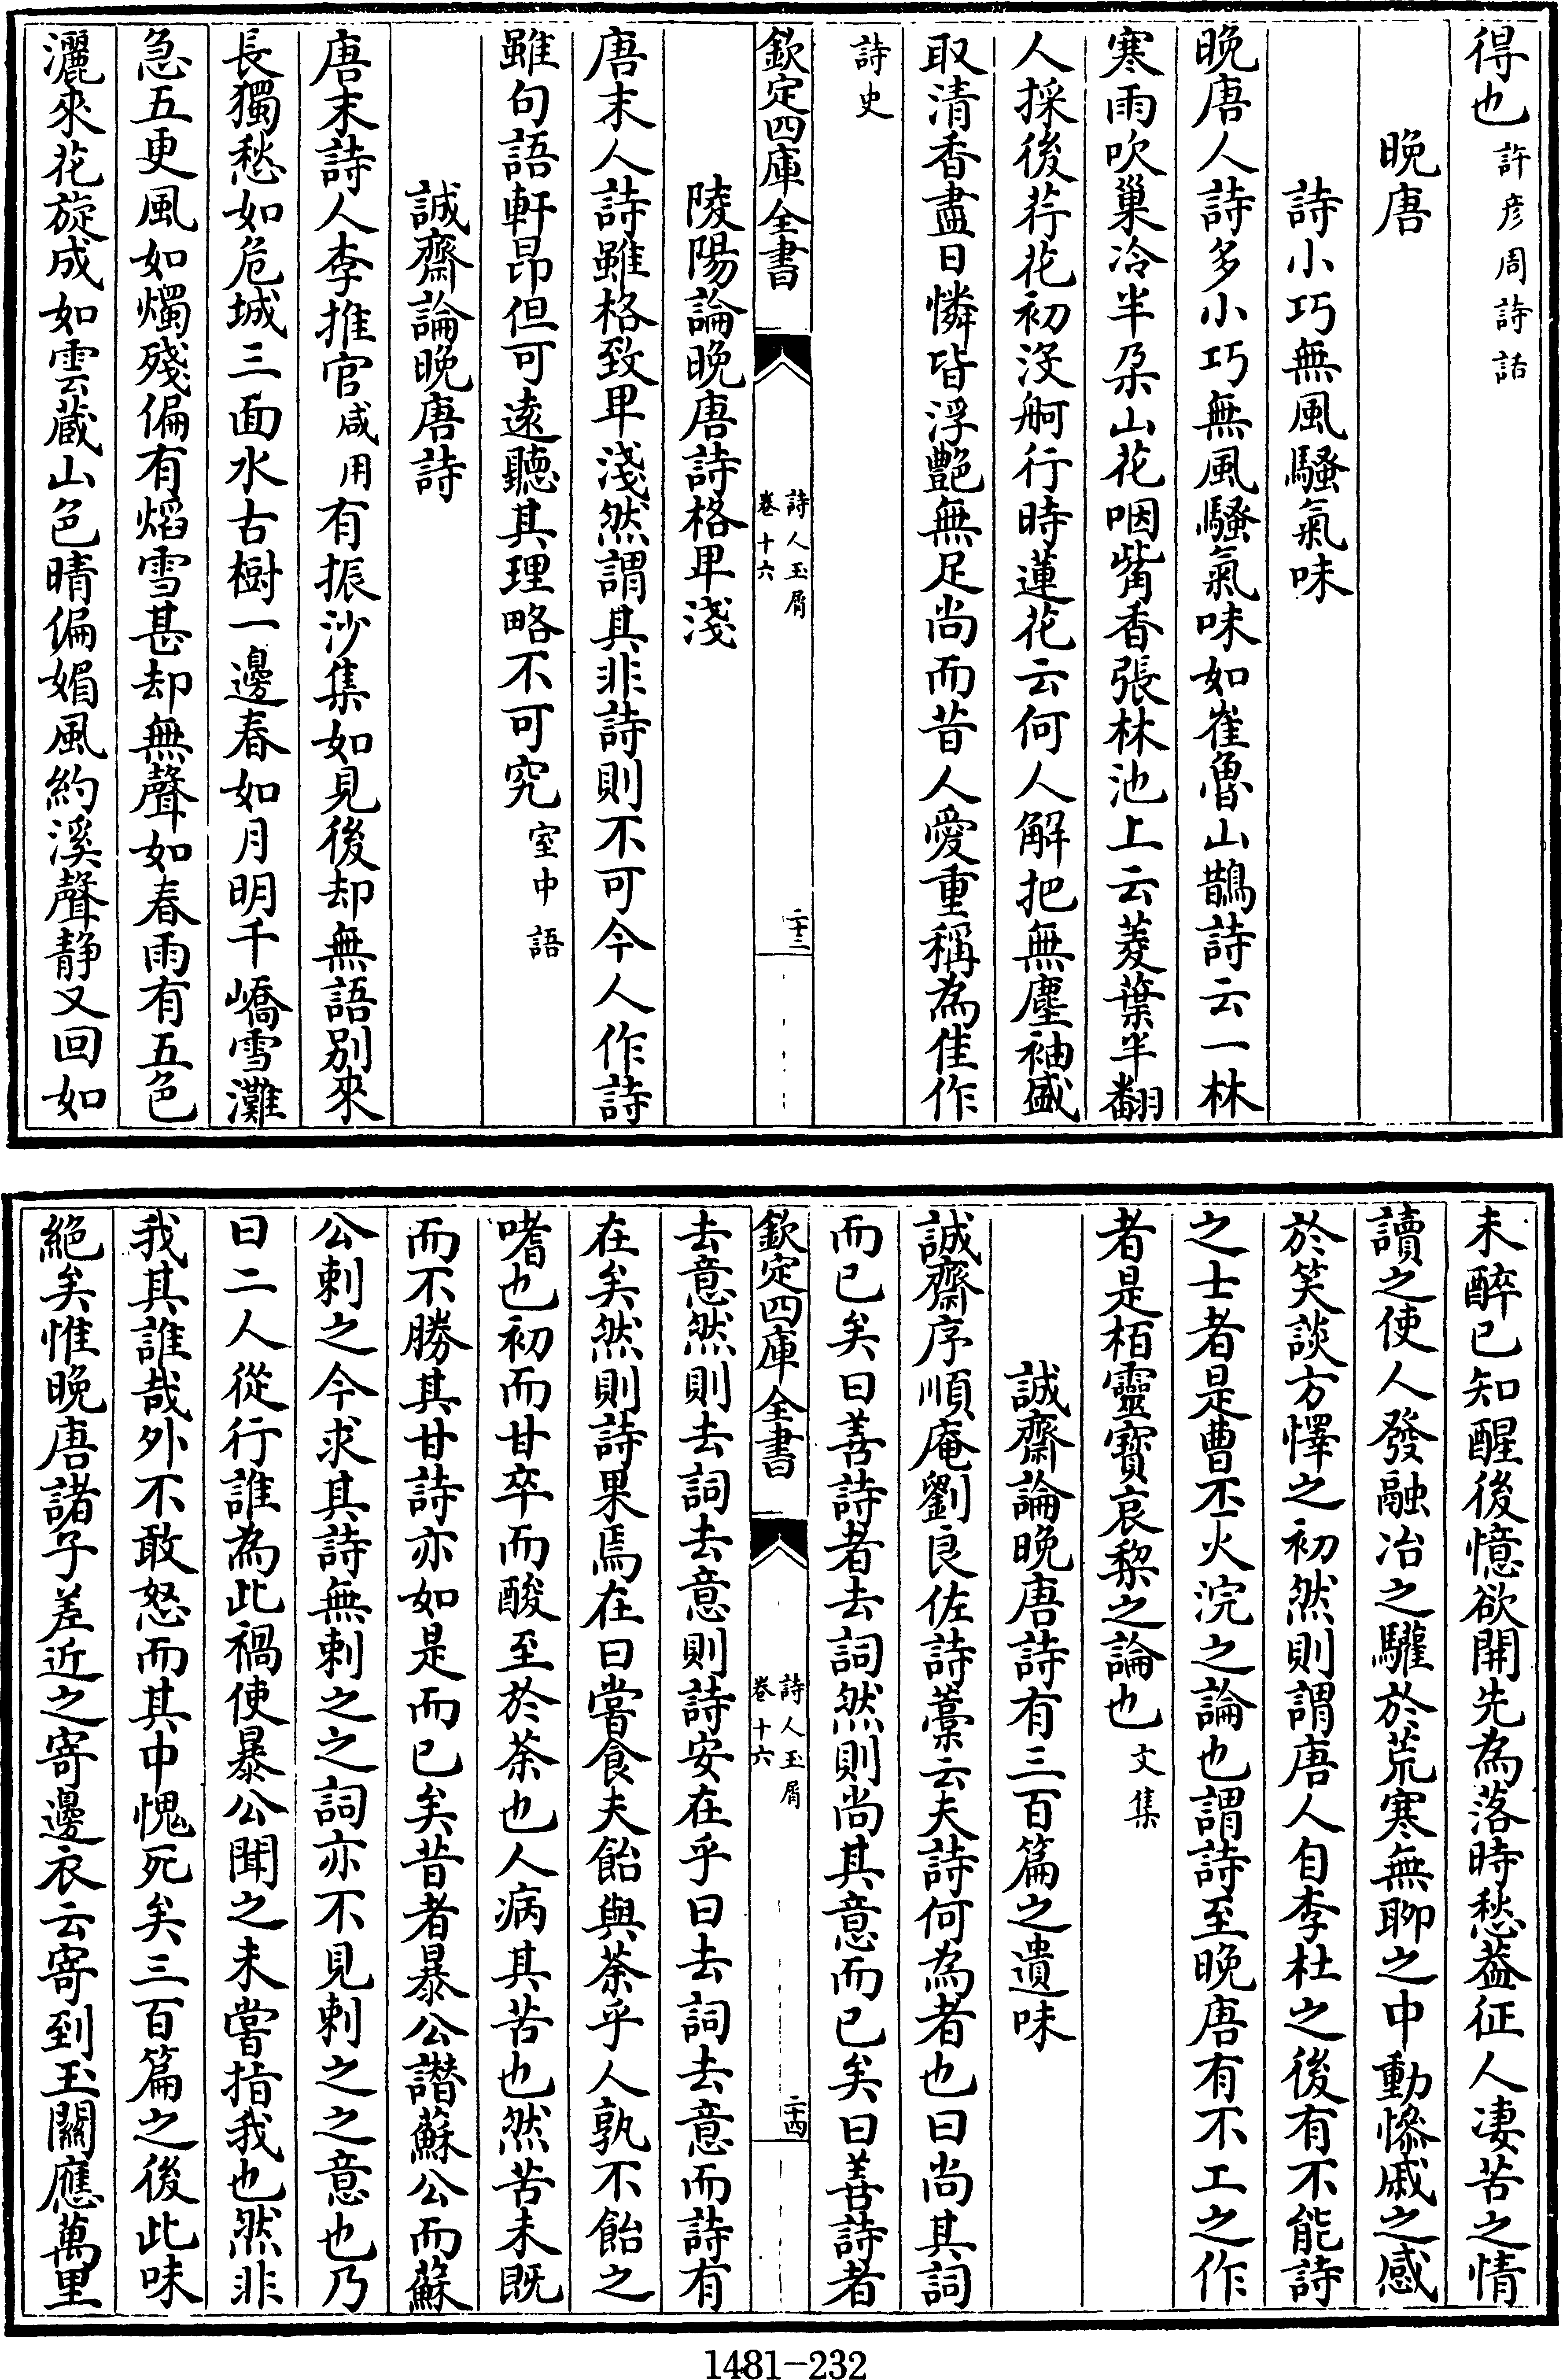 得也許彦周詩話
晚唐
詩小巧無風騷氣味
晚唐人詩多小巧無風騷氣味如崔魯山鵲詩云一林
寒雨吹巢冷半朶山花咽觜香張林池上云菱葉半翻
人採後荇花初沒舸行時蓮花云何人解把無塵袖盛
取清香盡日憐皆浮艷無足尚而昔人愛重稱為佳作
詩史
欽定四庫全書 詩人玉屑 卷十六 二十三
陵陽論晚唐詩格卑淺
唐末人詩雖格致卑淺然謂其非詩則不可今人作詩
雖句語軒昂但可遠聽其理略不可究室中語
誠齋論晚唐詩
唐末詩人李推官咸用有振沙集如見後却無語別來
長獨愁如危城三面水古樹一邊春如月明千嶠雪灘
急五更風如燭殘偏有熖雪甚却無聲如春雨有五色
灑來花旋成如雲蔵山色晴偏媚風約溪聲静又回如
未醉已知醒後憶欲開先為落時愁葢征人凄苦之情
讀之使人發融冶之驩於荒寒無聊之中動慘戚之感
於笑談方懌之初然則謂唐人自李杜之後有不能詩
之士者是曹丕火浣之論也謂詩至晚唐有不工之作
者是栢靈寶哀棃之論也文集
誠齋論晚唐詩有三百篇之遺味
誠齋序順庵劉良佐詩藁云夫詩何為者也曰尚其詞
而已矣曰善詩者去詞然則尚其意而已矣曰善詩者
欽定四庫全書 詩人玉屑 卷十六 二十四
去意然則去詞去意則詩安在乎曰去詞去意而詩有
在矣然則詩果焉在曰嘗食夫飴與荼乎人孰不飴之
嗜也初而甘卒而酸至於荼也人病其苦也然苦未既
而不勝其甘詩亦如是而已矣昔者暴公譖蘇公而蘇
公刺之今求其詩無刺之之詞亦不見刺之之意也乃
曰二人從行誰為此禍使暴公聞之未嘗指我也然非
我其誰哉外不敢怒而其中愧死矣三百篇之後此味
絕矣惟晚唐諸子差近之寄邊衣云寄到玉關應萬里
1481-232